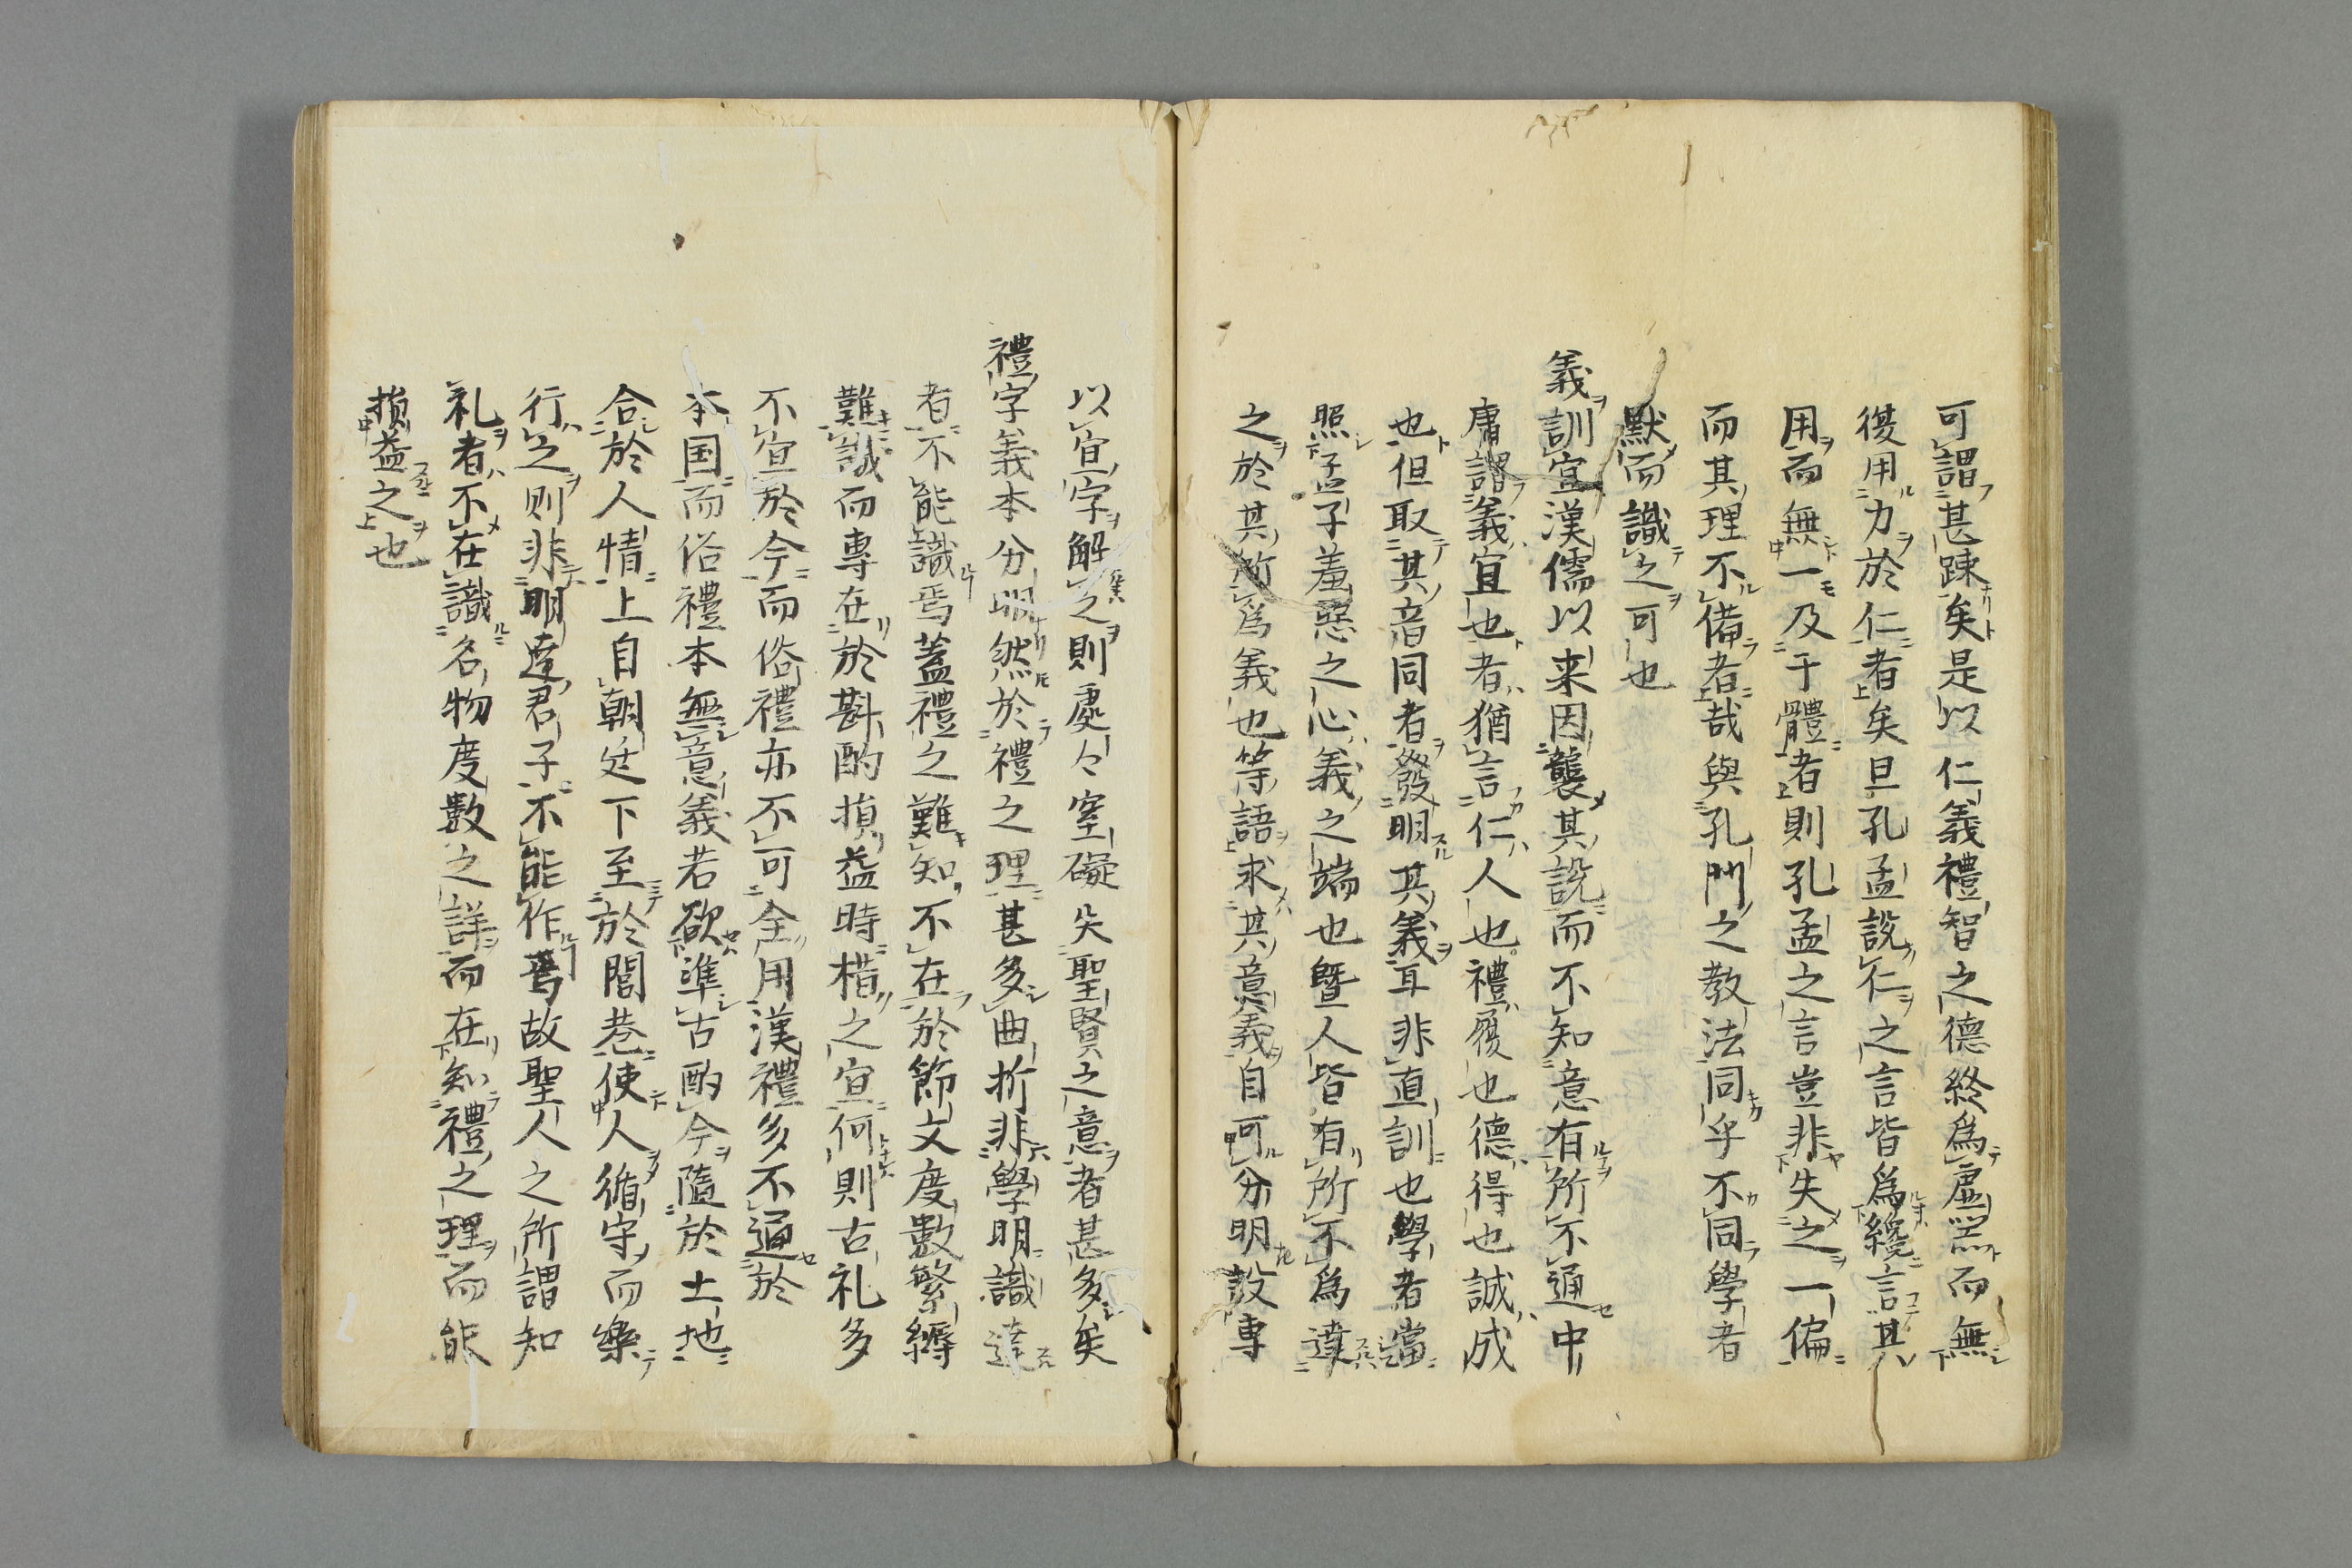 可謂甚踈矣是以仁義禮智之德終爲虛器而無
復用力於仁者矣且孔孟說仁之言皆爲纔言其
用而無一及于體者則孔孟之言豈非失之一偏
而其理不備者哉與孔門之教法同乎不同學者
默而識之可也
義訓宜漢儒以来因襲其説而不知意有所不通中
庸謂義宜也者猶言仁人也禮履也德得也誠成
也但取其音同者發明其義耳非直訓也學者當
照孟子羞惡之心義之端也曁人皆有所不爲達
之於其所爲義也等語求其意義自可分明設專
以宜字解之則處々窒礙失聖賢之意者甚多矣
禮字義本分明然於禮之理甚多曲折非學明識達
者不能識焉蓋禮之難知不在於節文度數繁縟
難識而專在於斟酌損益時措之宜何則古礼多
不宜於今而俗禮亦不可全用漢禮多不通於
本国而俗禮本無意義若欲準古酌今隨於土地
合於人情上自朝廷下至於閭巷使人循守而樂
行之則非明達君子不能作焉故聖人之所謂知
礼者不在識名物度數之詳而在知禮之理而能
損益之也